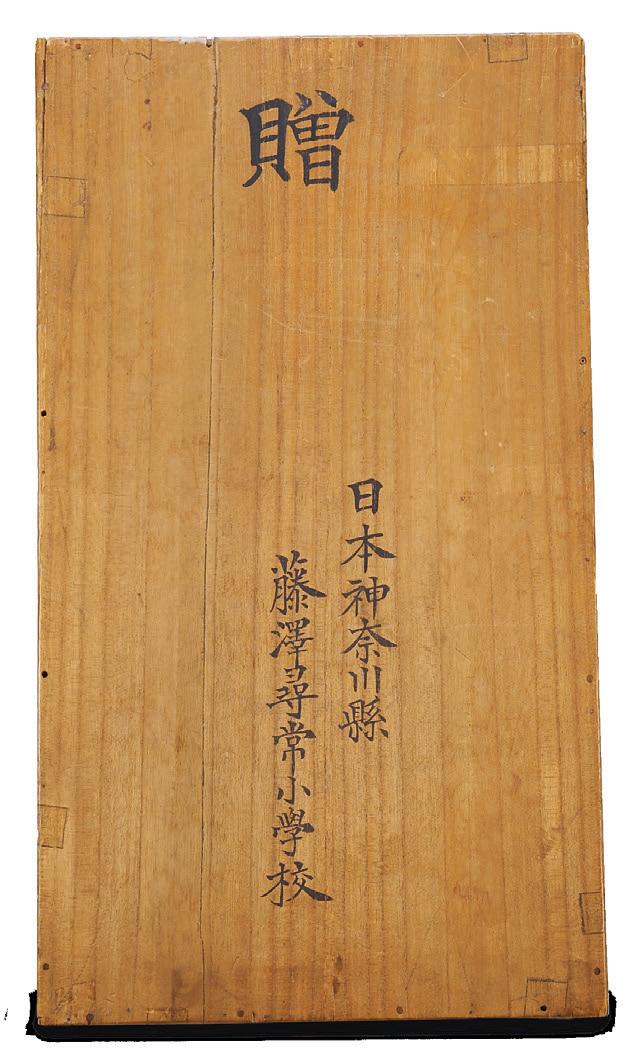 贈
日本神奈川縣
藤澤尋常小學校